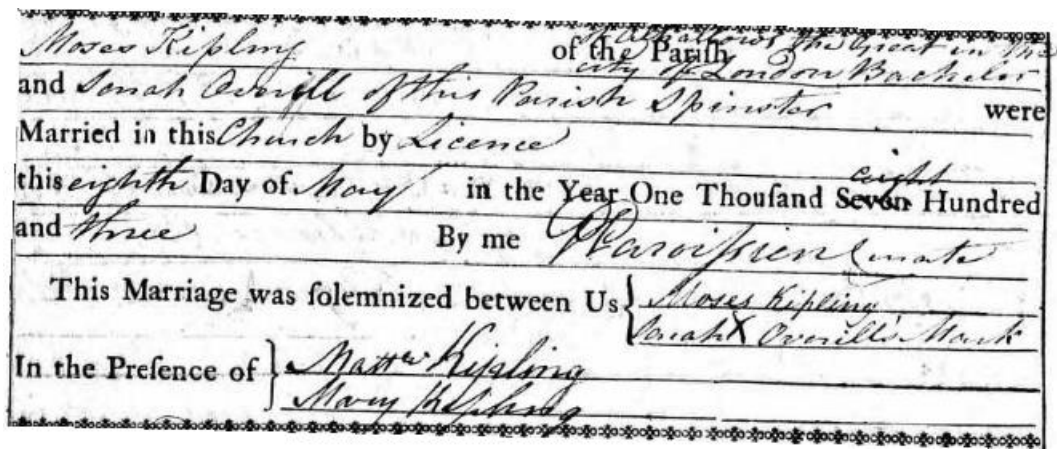 Moses Kipling of the Pariſh St Allhallows the Great in the
city of London Bachelor
and Sarah Overill of this Parish Spinster were
Married in this Church by Licence
this eighth Day of May in the Year One Thouſand Seven eight Hundred
and three By me Parviſsien Curate
This Marriage was ſolemnized between Us { Moses Kipling
Sarah X Overill's Mark
In the Preſence of } Mattw Kipling
Mary Kipling